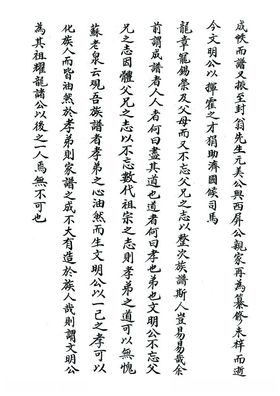 成帙而譜又振至封翁先生元美公與西屏公親家再為纂修未梓而逝
今文明公以揮霍之才捐助濟國候司馬
龍章寵錫榮及父母而又不忘父兄之志以鏨次族譜斯人豈易易哉余
前謂成譜者人人者何曰盡其道也道者何曰孝也弟也文明公不忘父
兄之志因體父兄之志以不忘數代祖宗之志則孝弟之道可以無愧
蘇老泉云觀吾族譜者孝弟之心油然而生文明公以一己之孝可以
化族人而皆油然於孝弟則家譜之成不大有造於族人哉則謂文明公
為其祖耀龍諸公以後之一人焉無不可也